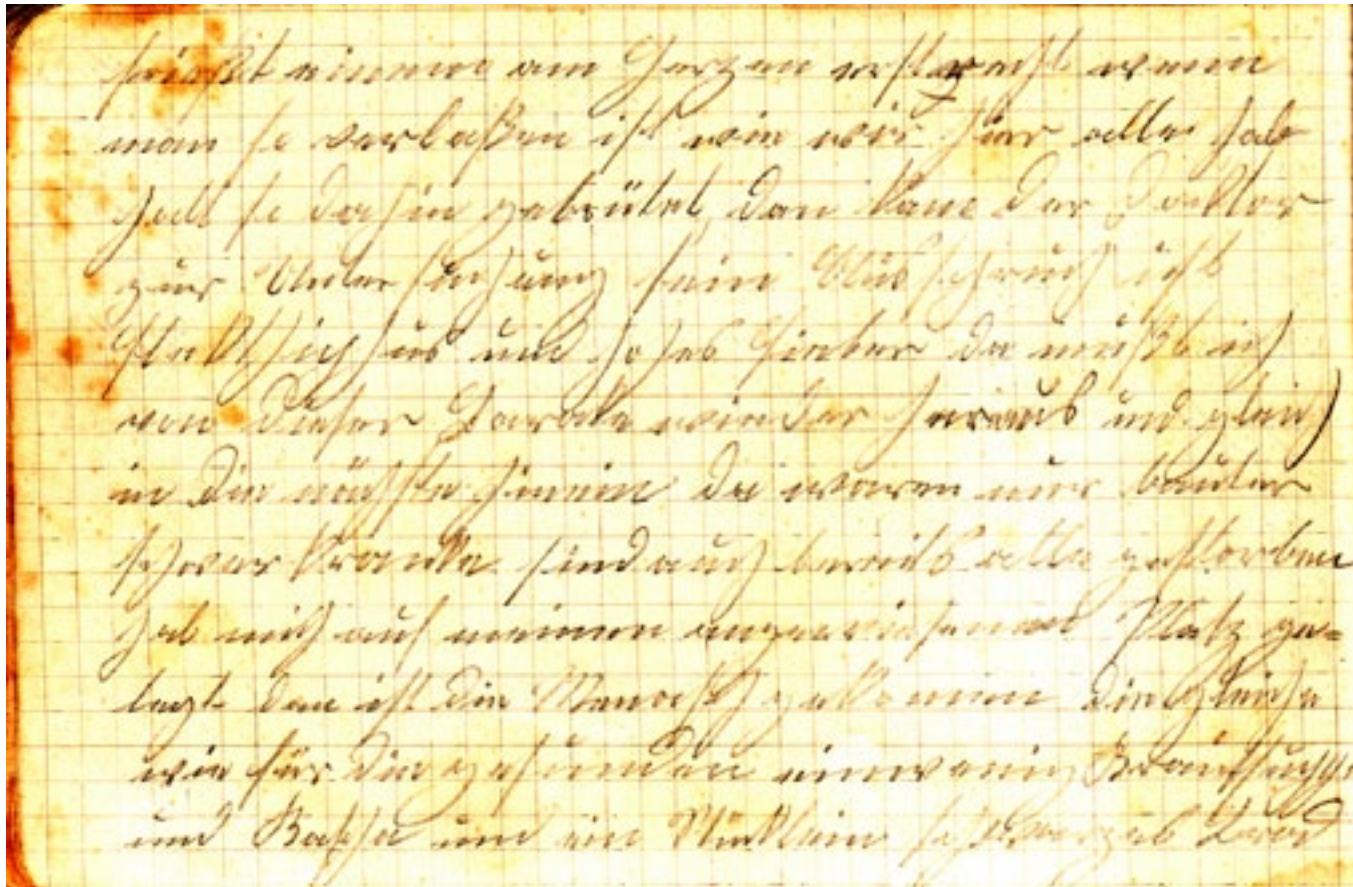 einem am Herzen erst recht wenn
man so verlaßen ist wie wir hier alle hab
halt so dahin gebrütet dan kam der Docktor
zur Untersuchung sein Ausspruch ist
und hohes Fieber da mußt ich
von dieser Barake wieder heraus und gleich
in die nächste hinein da waren nur lauter
schwer Kranke sind auch bereits alle gestorben
hab mich auf meinen angewiesenen Platz ge=
legt dan ist die Menasch gekommen die gleiche
wie für die gesunden ein wenig
und Kascha und ein Stücklein schwarzes Brod